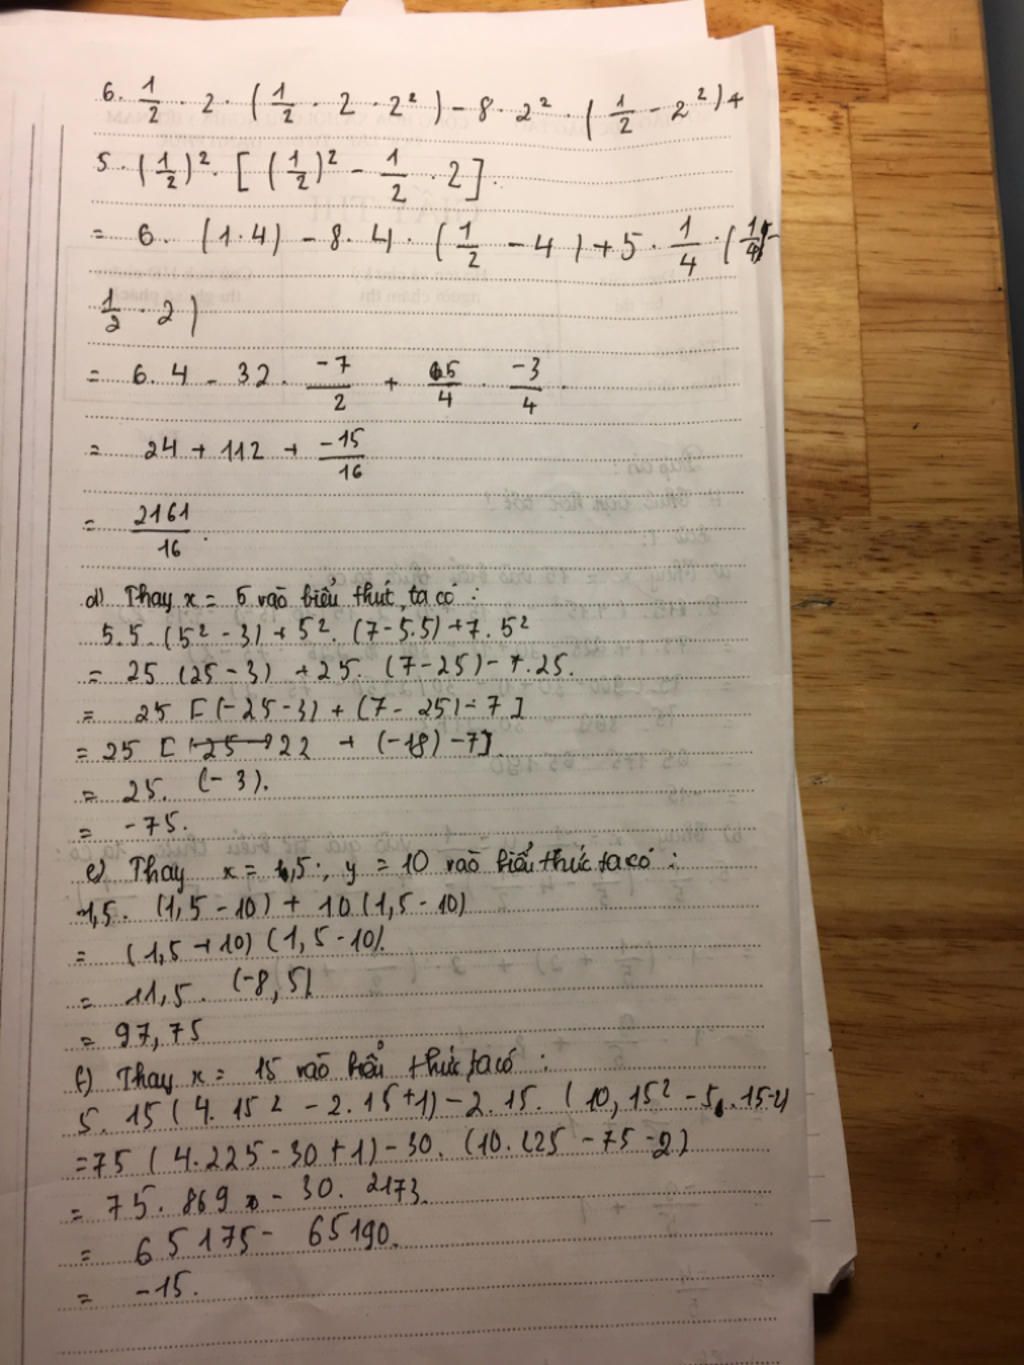 6. 1/2 . 2 . (1/2 . 2 . 2²) - 8 . 2² . (1/2 - 2²) +
5 . (1/2)² . [(1/2)² - 1/2 . 2].
= 6. (1.4) - 8.4. (1/2 - 4) + 5 . 1/4 . (1/4 -
1/2 . 2)
= 6.4 - 32 . -7/2 + 5/4 . -3/4 .
= 24 + 112 + -15/16
= 2161/16.
d) Thay x = 5 vào biểu thức, ta có :
5.5.(5² - 3) + 5². (7-5.5) + 7.5²
= 25 (25-3) + 25. (7-25) - 7.25.
= 25 [(-25-3) + (7-25) - 7]
= 25 [ 22 + (-18) - 7].
= 25. (-3).
= -75.
e) Thay x = 1,5 ; y = 10 vào biểu thức ta có :
1,5. (1,5 - 10) + 10 (1,5 - 10)
= (1,5 + 10) (1,5 - 10).
= 11,5. (-8,5).
= 97,75
f) Thay x = 15 vào biểu thức, ta có :
5. 15 (4. 15² - 2. 15 + 1) - 2. 15. (10, 15² - 5. 15-2)
= 75 (4.225 - 30 + 1) - 30. (10. 225 - 75 - 2)
= 75. 869 - 30. 2173.
= 65175 - 65190.
= -15.